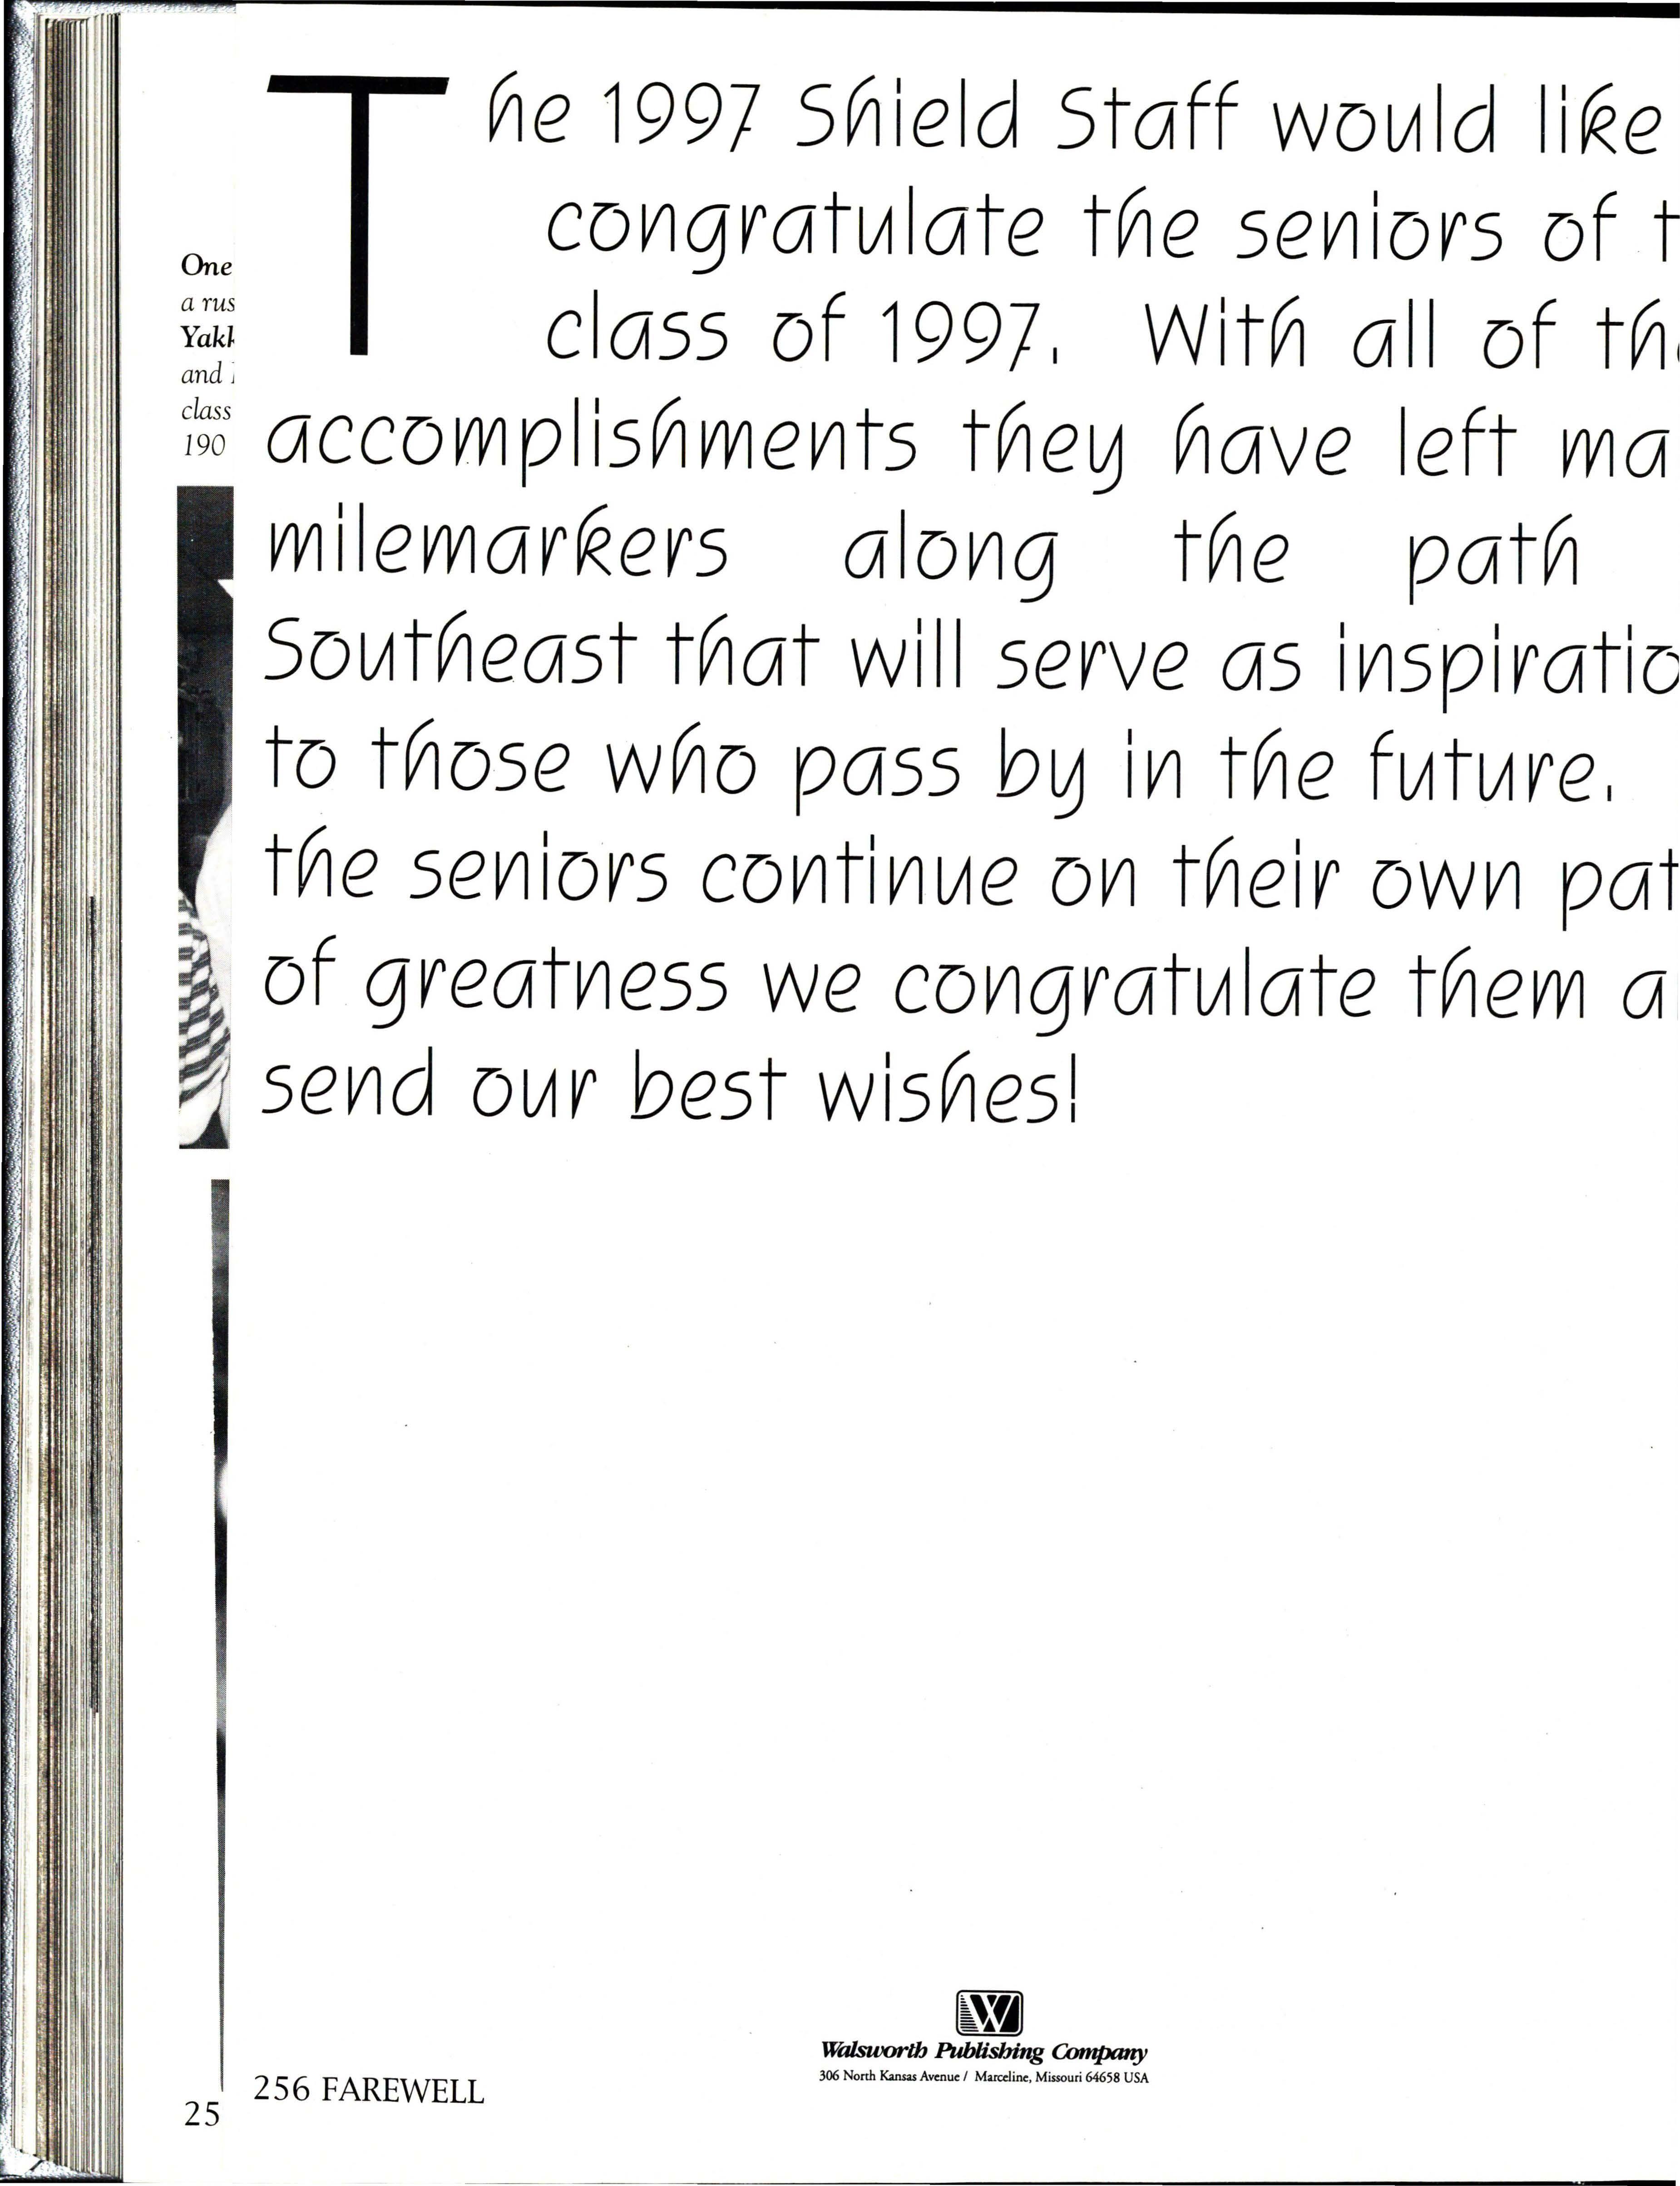 One
a rus
Yakk
and
class
190
25
The 1997 Shield Staff would like
congratulate the seniors of t
class of 1997. With all of the
accomplishments they have left ma
milemarkers along the path
Southeast that will serve as inspiratio
to those who pass by in the future.
the seniors continue on their own pat
of greatness we congratulate them a
send our best wishes!
W
Walsworth Publishing Company
306 North Kansas Avenue / Marceline, Missouri 64658 USA
256 FAREWELL